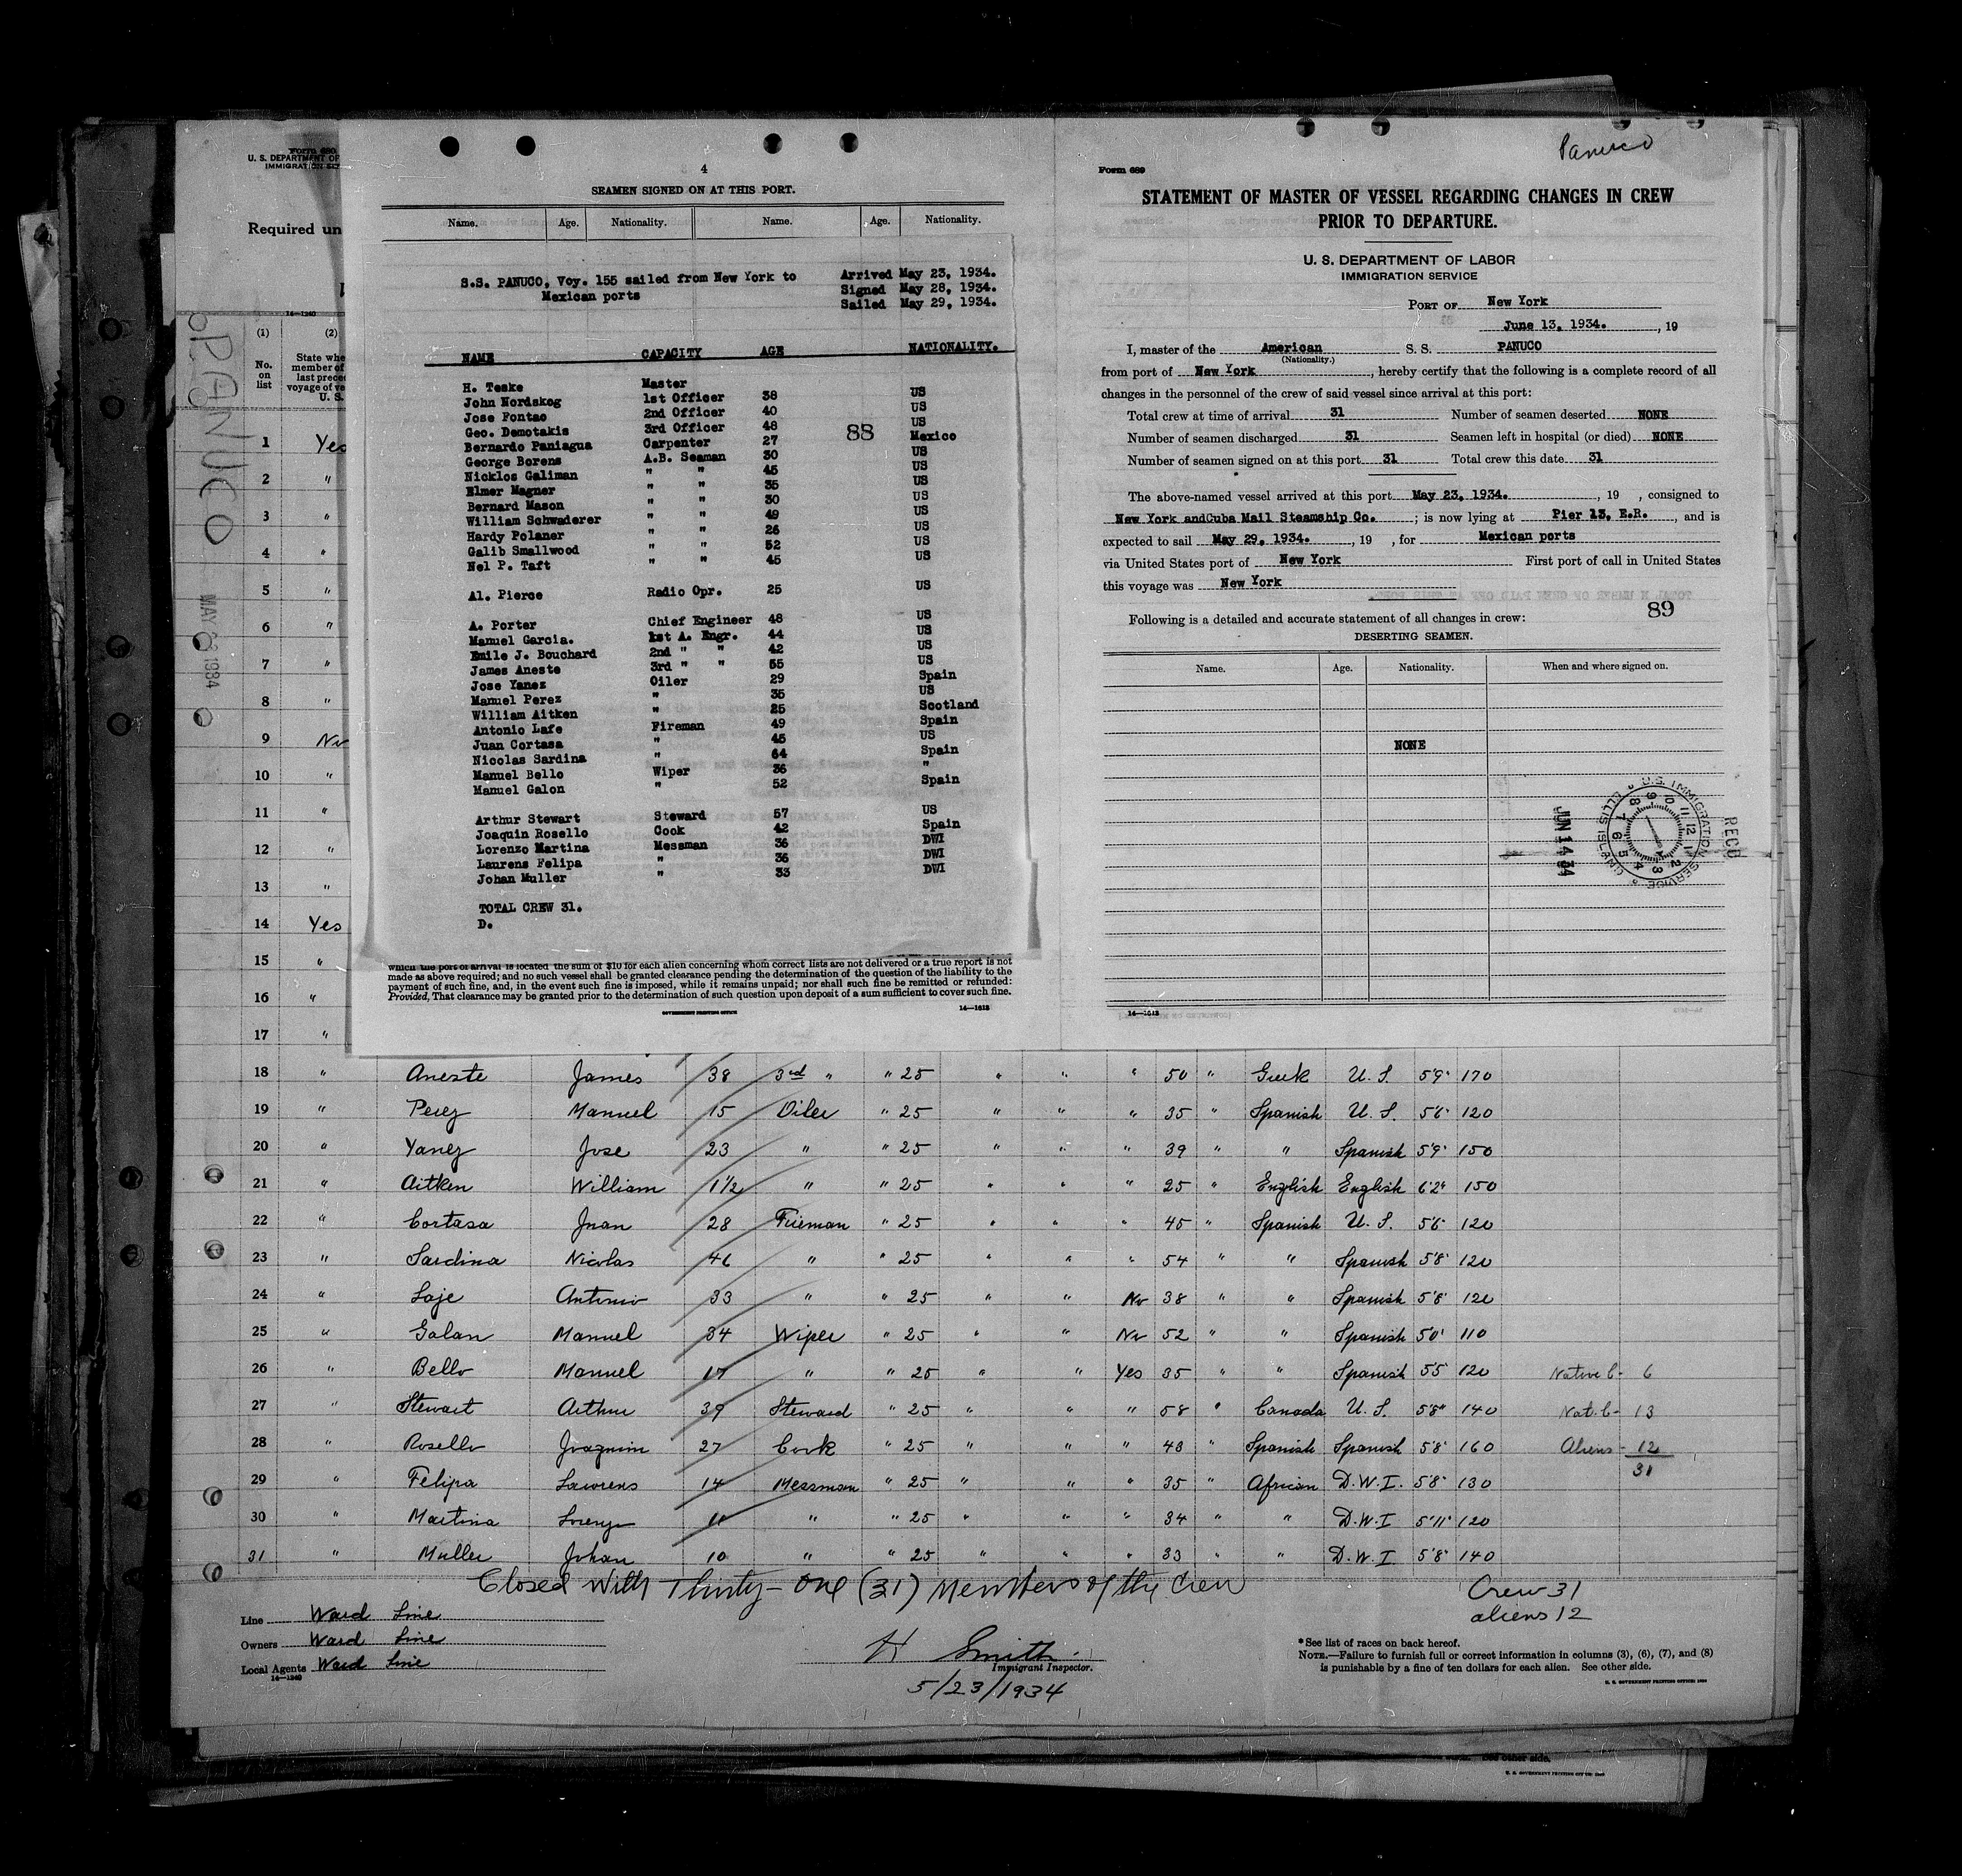 Form 680
U. S. DEPARTMENT OF
IMMIGRATION SE
Required un
14—1240
(1)
(2)
No. on list
State whe
member of
last prece
voyage of ve
U. S.
PANUCO
MAY 23 1934
1 Yes
2 "
3 "
4 "
5 "
6 "
7 "
8 "
9 No
10 "
11 "
12 "
13 "
14 Yes
15 "
16 "
17 "
4
SEAMEN SIGNED ON AT THIS PORT.
Name. Age. Nationality. Name. Age. Nationality.
S.S. PANUCO, Voy. 155 sailed from New York to
Mexican ports
Arrived May 23, 1934.
Signed May 28, 1934.
Sailed May 29, 1934.
NAME CAPACITY AGE NATIONALITY.
H. Teske Master
John Nordskog 1st Officer 38 US
Jose Fontao 2nd Officer 40 US
Geo. Demotakis 3rd Officer 48 US
Bernardo Paniagua Carpenter 27 Mexico
88
George Borens A.B. Seaman 30 US
Nicklos Galiman " " 45 US
Elmer Magner " " 35 US
Bernard Mason " " 30 US
William Schwaderer " " 49 US
Hardy Polaner " " 26 US
Galib Smallwood " " 52 US
Nel P. Taft " " 45 US
Al. Pierce Radio Opr. 25 US
A. Porter Chief Engineer 48 US
Manuel Garcia. 1st A. Engr. 44 US
Emile J. Bouchard 2nd " " 42 US
James Aneste 3rd " " 55 US
Jose Yanez Oiler 29 Spain
Manuel Perez " 35 US
William Aitken " 25 Scotland
Antonio Lafe Fireman 49 Spain
Juan Cortasa " 45 US
Nicolas Sardina " 64 Spain
Manuel Bello Wiper 36 "
Manuel Galon " 52 Spain
Arthur Stewart Steward 57 US
Joaquin Rosello Cook 42 Spain
Lorenzo Martina Messman 36 DWI
Laurens Felipa " 36 DWI
Johan Muller " 33 DWI
TOTAL CREW 31.
D.
which the port of arrival is located the sum of $10 for each alien concerning whom correct lists are not delivered or a true report is not
made as above required; and no such vessel shall be granted clearance pending the determination of the question of the liability to the
payment of such fine, and, in the event such fine is imposed, while it remains unpaid; nor shall such fine be remitted or refunded:
Provided, That clearance may be granted prior to the determination of such question upon deposit of a sum sufficient to cover such fine.
GOVERNMENT PRINTING OFFICE 14—1613
Panuco
Form 689
STATEMENT OF MASTER OF VESSEL REGARDING CHANGES IN CREW
PRIOR TO DEPARTURE.
U. S. DEPARTMENT OF LABOR
IMMIGRATION SERVICE
PORT OF New York
June 13, 1934. , 19
I, master of the American S. S. PANUCO
(Nationality.)
from port of New York , hereby certify that the following is a complete record of all
changes in the personnel of the crew of said vessel since arrival at this port:
Total crew at time of arrival 31 Number of seamen deserted NONE
Number of seamen discharged 31 Seamen left in hospital (or died) NONE
Number of seamen signed on at this port 31 Total crew this date 31
The above-named vessel arrived at this port May 23, 1934. , 19 , consigned to
New York andCuba Mail Steamship Co. ; is now lying at Pier 13, E.R. , and is
expected to sail May 29, 1934. , 19 , for Mexican ports
via United States port of New York First port of call in United States
this voyage was New York
89
Following is a detailed and accurate statement of all changes in crew:
DESERTING SEAMEN.
Name. Age. Nationality. When and where signed on.
NONE
JUN 14 34
U.S. IMMIGRATION SERVICE ELLIS ISLAND
RECD
14—1613
18 " Aneste James 38 3rd " " 25 " " " 50 " Greek U. S. 5'9" 170
19 " Perez Manuel 15 Oiler " 25 " " " 35 " Spanish U. S. 5'6" 120
20 " Yanez Jose 23 " " 25 " " " 39 " " Spanish 5'9" 150
21 " Aitken William 1 1/2 " " 25 " " " 25 " English English 6'2" 150
22 " Cortasa Juan 28 Fireman " 25 " " " 45 " Spanish U. S. 5'6" 120
23 " Sardina Nicolas 46 " " 25 " " " 54 " " Spanish 5'8" 120
24 " Laje Antonio 33 " " 25 " " No 38 " " Spanish 5'8" 120
25 " Galan Manuel 34 Wiper " 25 " " No 52 " " Spanish 5'0" 110
26 " Bello Manuel 17 " " 25 " " Yes 35 " " Spanish 5'5 120 Native C- 6
27 " Stewart Arthur 39 Steward " 25 " " " 58 " Canada U. S. 5'8" 140 Nat. C- 13
28 " Rosello Joaquim 27 Cook " 25 " " " 43 " Spanish Spanish 5'8" 160 Aliens - 12
31
29 " Felipa Lawrens 14 Messman " 25 " " " 35 " African D.W.I. 5'8" 130
30 " Martina Lorenzo 11 " " 25 " " " 34 " " D.W.I 5'11" 120
31 " Muller Johan 10 " " 25 " " " 33 " " D.W.I 5'8" 140
Closed With Thirty-One (31) Members of the Crew
Crew 31
aliens 12
Line Ward Line
Owners Ward Line
Local Agents Ward Line
14—1240
H Smith
Immigrant Inspector.
5/23/1934
*See list of races on back hereof.
NOTE.—Failure to furnish full or correct information in columns (3), (6), (7), and (8)
is punishable by a fine of ten dollars for each alien. See other side.
U. S. GOVERNMENT PRINTING OFFICE
See other side.
U. S. GOVERNMENT PRINTING OFFICE